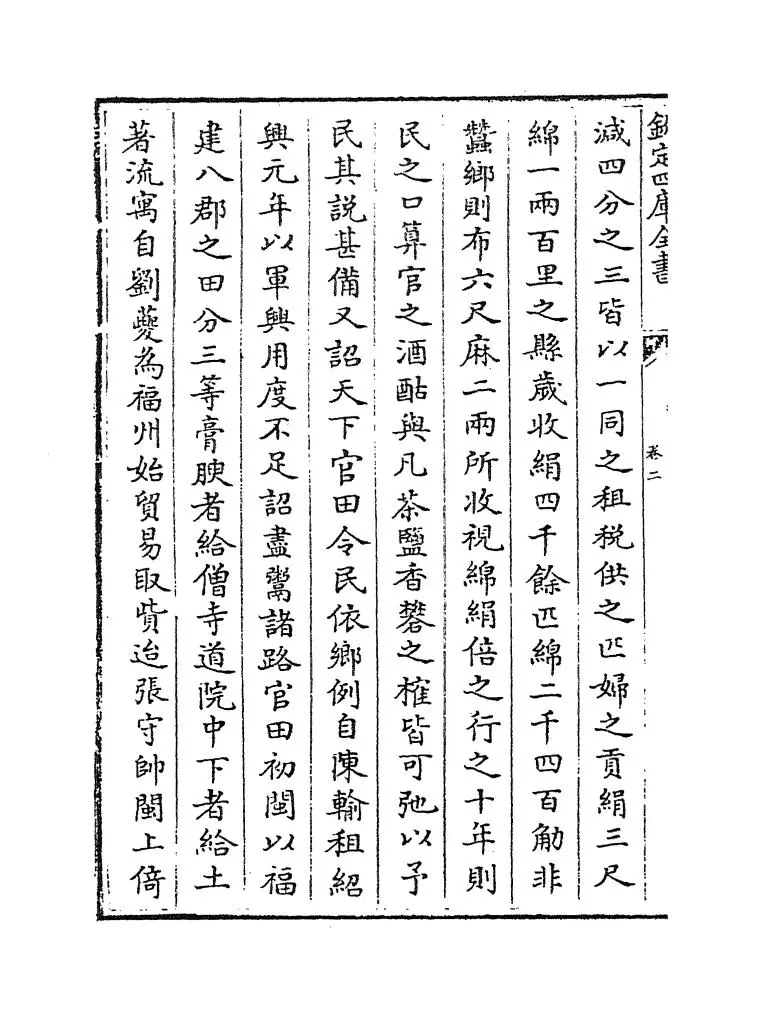 欽定四庫全書
卷二
減四分之三皆以一同之租税供之匹婦之貢絹三尺
綿一兩百里之縣歲收絹四千餘匹綿二千四百觔非
蠶鄉則布六尺麻二兩所收視綿絹倍之行之十年則
民之口算官之酒酤與凡茶鹽香礬之榷皆可弛以予
民其説甚備又詔天下官田令民依鄉例自陳輸租紹
興元年以軍興用度不足詔盡鬻諸路官田初閩以福
建八郡之田分三等膏腴者給僧寺道院中下者給土
著流寓自劉夔為福州始貿易取貲迨張守帥閩上倚